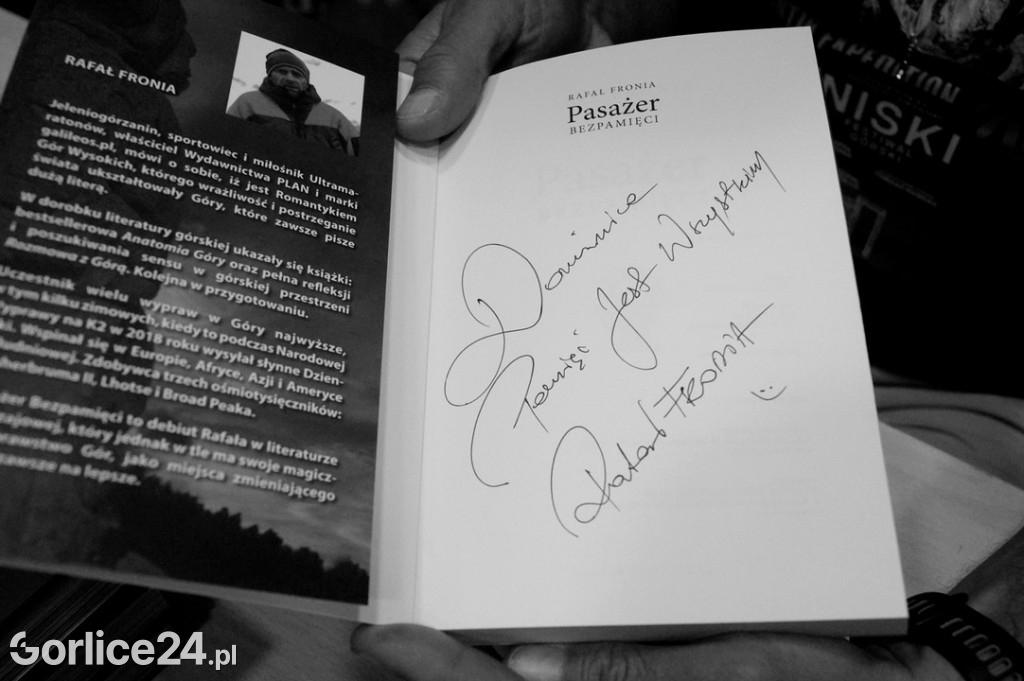 RAFAŁ FRONIA
Jeleniogórzanin, sportowiec i miłośnik Ultrama-
ratonów, właściciel Wydawnictwa PLAN i marki
galileos.pl, mówi o sobie, iż jest Romantykiem
Gór Wysokich, którego wrażliwość i postrzeganie
świata ukształtowały Góry, które zawsze pisze
dużą literą.
W dorobku literatury górskiej ukazały się książki:
bestsellerowa Anatomia Góry oraz pełna refleksji
i poszukiwania sensu w górskiej przestrzeni
Rozmowa z Górą. Kolejna w przygotowaniu.
Uczestnik wielu wypraw w Góry najwyższe,
w tym kilku zimowych, kiedy to podczas Narodowej
Wyprawy na K2 w 2018 roku wysyłał słynne Dzien-
ki. Wspinał się w Europie, Afryce, Azji i Ameryce
Południowej. Zdobywca trzech ośmiotysięczników:
herbruma II, Lhotse i Broad Peaka.
żer Bezpamięci to debiut Rafała w literaturze
zajowej, który jednak w tle ma swoje magicz-
rawstwo Gór, jako miejsca zmieniającego
zawsze na lepsze.
RAFAŁ FRONIA
Pasażer
BEZPAMIĘCI
Dominice
Pamięć Jest Wszystkim
Rafał FRONIA
:)
NISKI
FESTIWAL
GÓRSKI
Gorlice24.pl